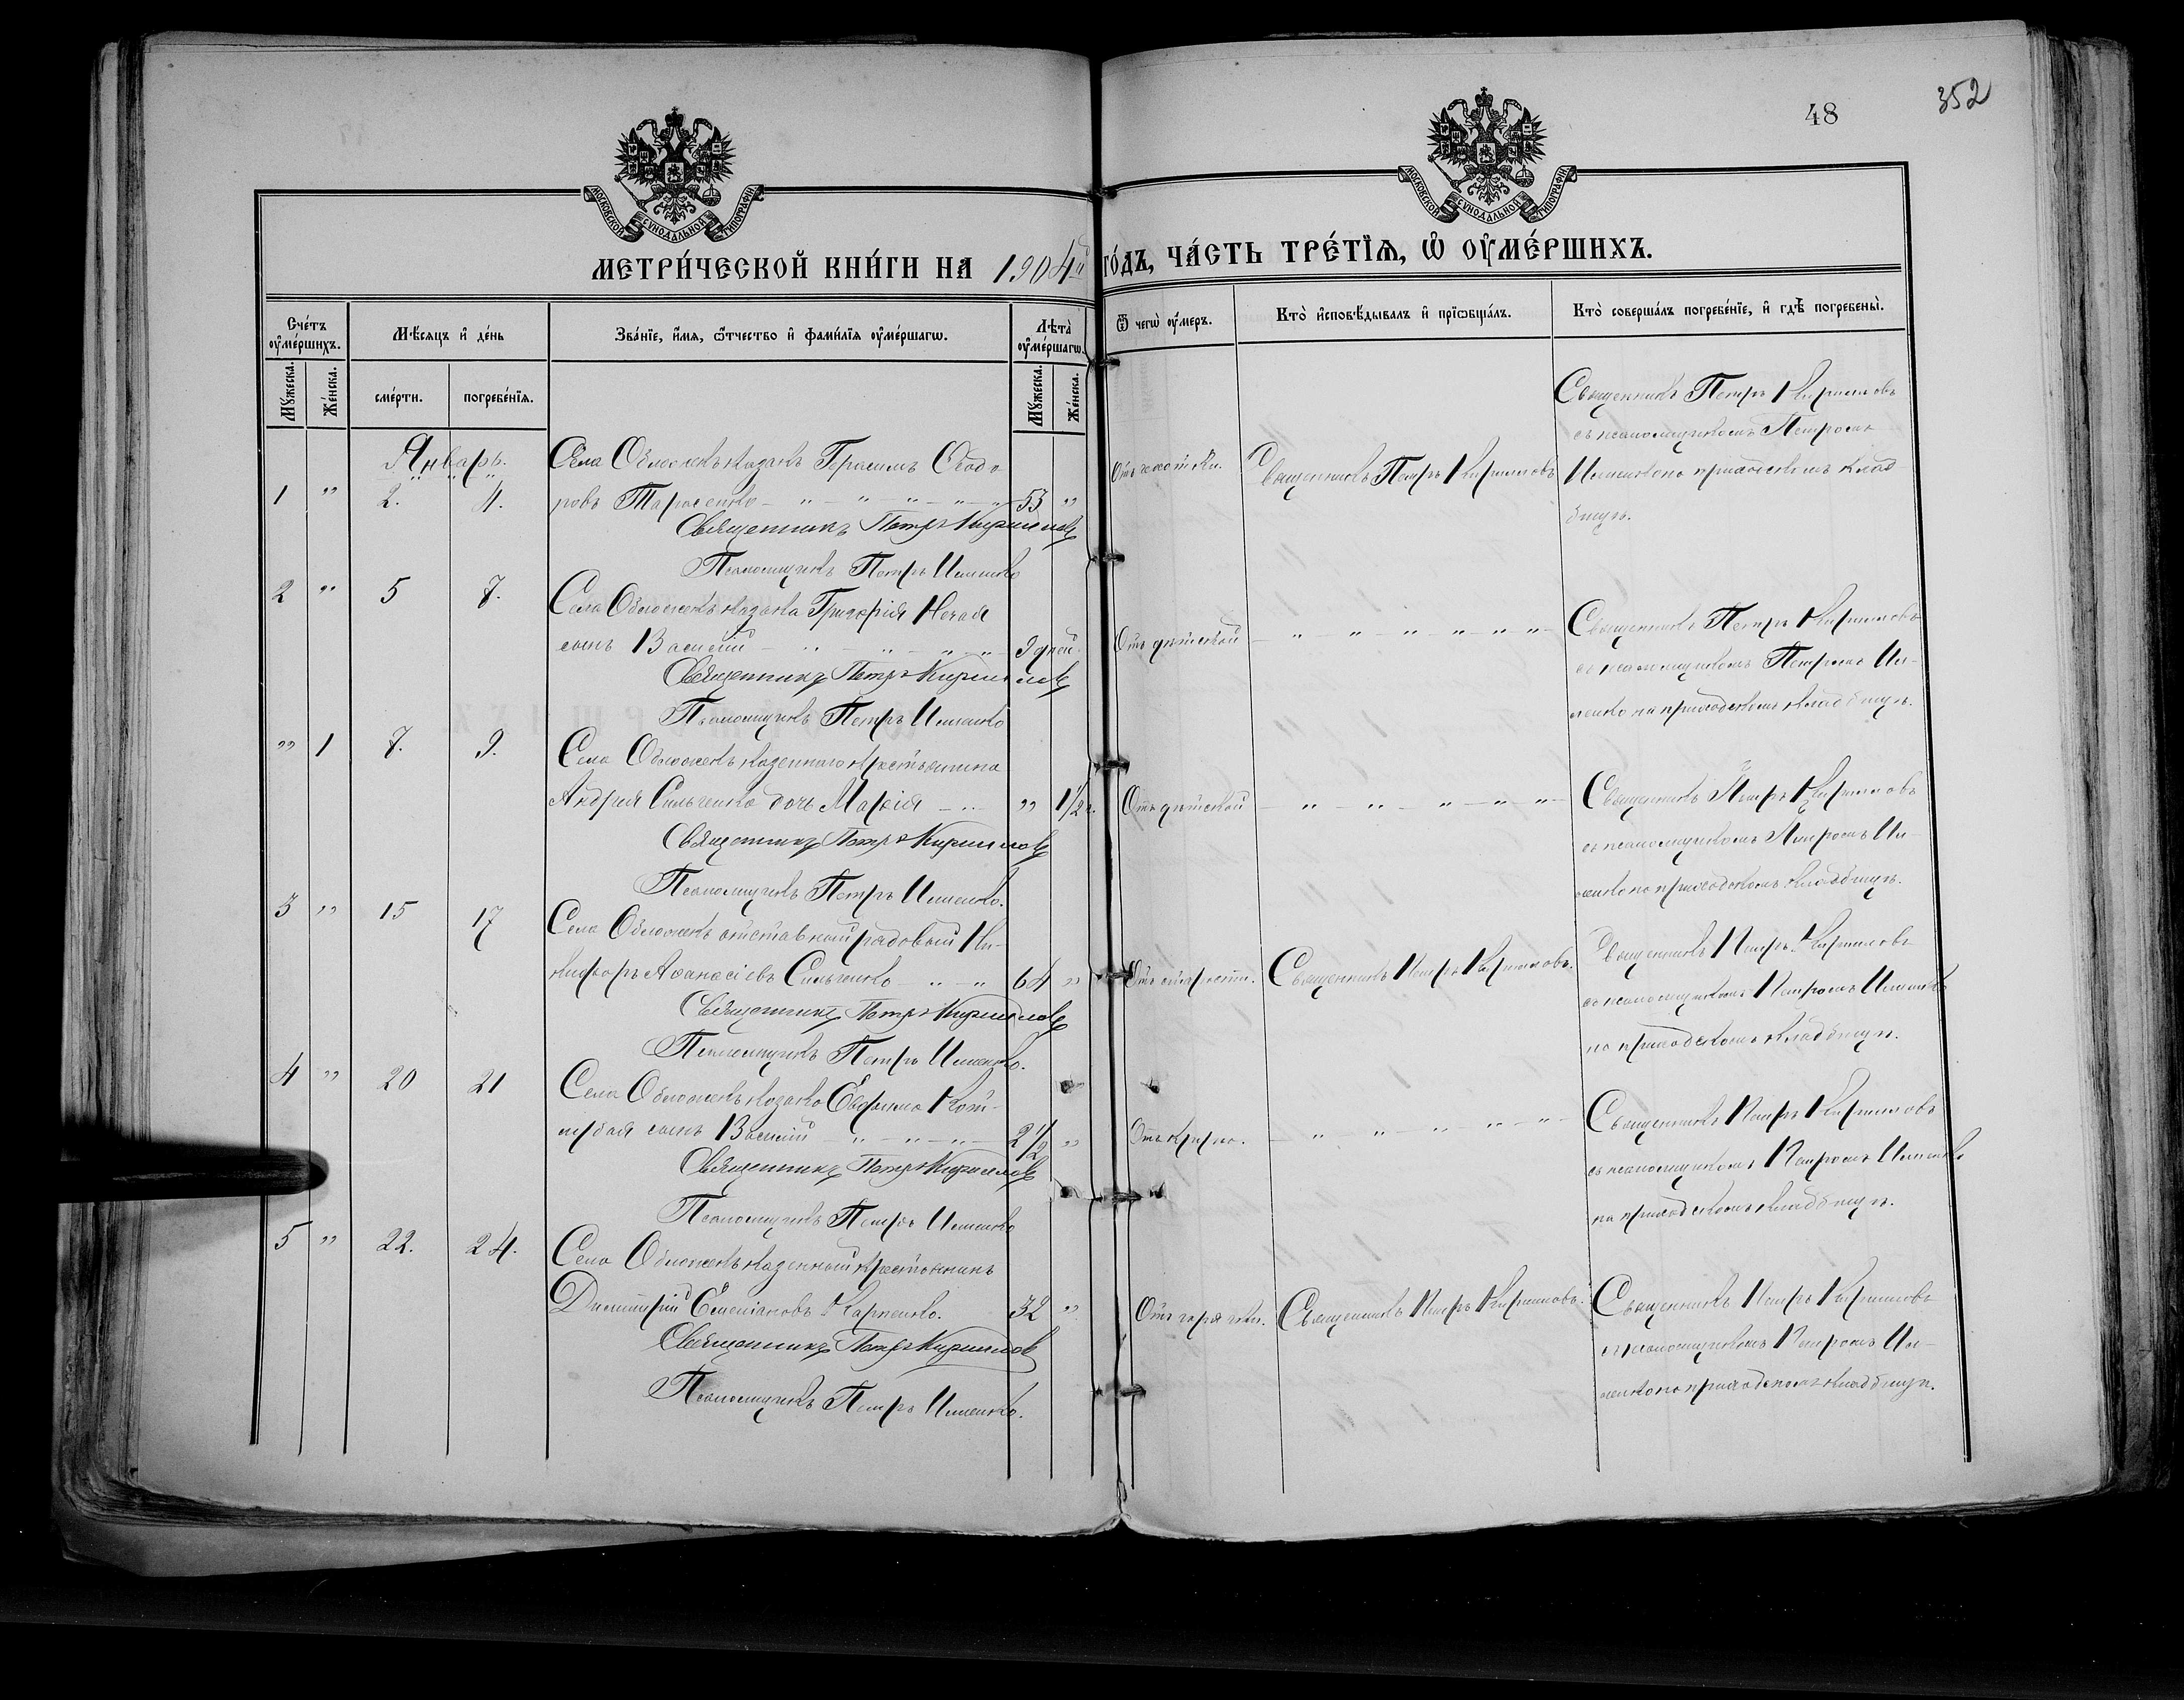 48
352
МОСКОВСКОЙ СѴНОДАЛЬНОЙ ТИПОГРАФІИ
МОСКОВСКОЙ СѴНОДАЛЬНОЙ ТИПОГРАФІИ
МЕТРИ́ЧЕСКОЙ КНИ́ГИ НА 1904й ГО́ДЪ, ЧА́СТЬ ТРЕ́ТІѦ, Ѽ ОУ҆МЕ́РШИХЪ.
Сче́тъ оу҆ме́ршихъ.
Мꙋ́жеска.
Же́нска.
Мѣ́сѧцъ и҆ де́нь
сме́рти.
погребе́нїѧ.
Зва́нїе, и҆́мѧ, ѻ҆́тчество и҆ фами́лїѧ оу҆ме́ршагѡ.
Лѣ́та оу҆ме́ршагѡ.
Мꙋ́жеска.
Же́нска.
Ѿ чегѡ̀ оу҆́меръ.
Кто̀ и҆сповѣ́дывалъ и҆ прїѡбща́лъ.
Кто̀ соверша́лъ погребе́нїе, и҆ гдѣ̀ погребены̀.
Январь.
1 " 2. 4.
Села Обложекъ козакъ Герасимъ Ѳеодо
ровъ Тарасенко 53 "
Священникъ Петръ Кириловъ
Псаломщикъ Петръ Ильенко
Отъ чахотки.
Священникъ Петръ Кириловъ
Священникъ Петръ Кириловъ
съ псаломщикомъ Петромъ
на приходскомъ клад
бищѣ.
2 " 5 7.
Села Обложекъ козака Григорія Нечая
сынъ Василій 9 дней
Священникъ Петръ Кириловъ
Псаломщикъ Петръ Ильенко
Отъ дѣтской
Священникъ Петръ Кириловъ
съ псаломщикомъ Петромъ Иль-
енко на приходскомъ кладбищѣ.
" 1 7. 9.
Села Обложекъ казеннаго крестьянина
Андрея Сильченка дочь Марія " 1/2 г.
Священникъ Петръ Кириловъ
Псаломщикъ Петръ Ильенко.
Отъ дѣтской
Священникъ Петръ Кириловъ
съ псаломщикомъ Петромъ Иль-
енко на приходскомъ кладбищѣ.
3 " 15 17
Села Обложекъ отставной рядовой Ни-
кифоръ Аѳанасіевъ Сильченко 64 "
Священникъ Петръ Кириловъ
Псаломщикъ Петръ Ильенко.
Отъ старости.
Священникъ Петръ Кириловъ.
Священникъ Петръ Кириловъ
съ псаломщикомъ Петромъ Ильенко
на приходскомъ кладбищѣ.
4 " 20 21
Села Обложекъ козака Евфима
сынъ Василій 2 1/2 "
Священникъ Петръ Кириловъ
Псаломщикъ Петръ Ильенко
Отъ крупа.
Священникъ Петръ Кириловъ
съ псаломщикомъ Петромъ Ильенко
на приходскомъ кладбищѣ.
5 " 22. 24.
Села Обложекъ казенный крестьянинъ
Димитрій Емеліановъ Карпенко. 32 "
Священникъ Петръ Кириловъ
Псаломщикъ Петръ Ильенко.
Отъ горячки.
Священникъ Петръ Кириловъ.
Священникъ Петръ Кириловъ
съ псаломщикомъ Петромъ Иль-
енко на приходскомъ кладбищѣ.